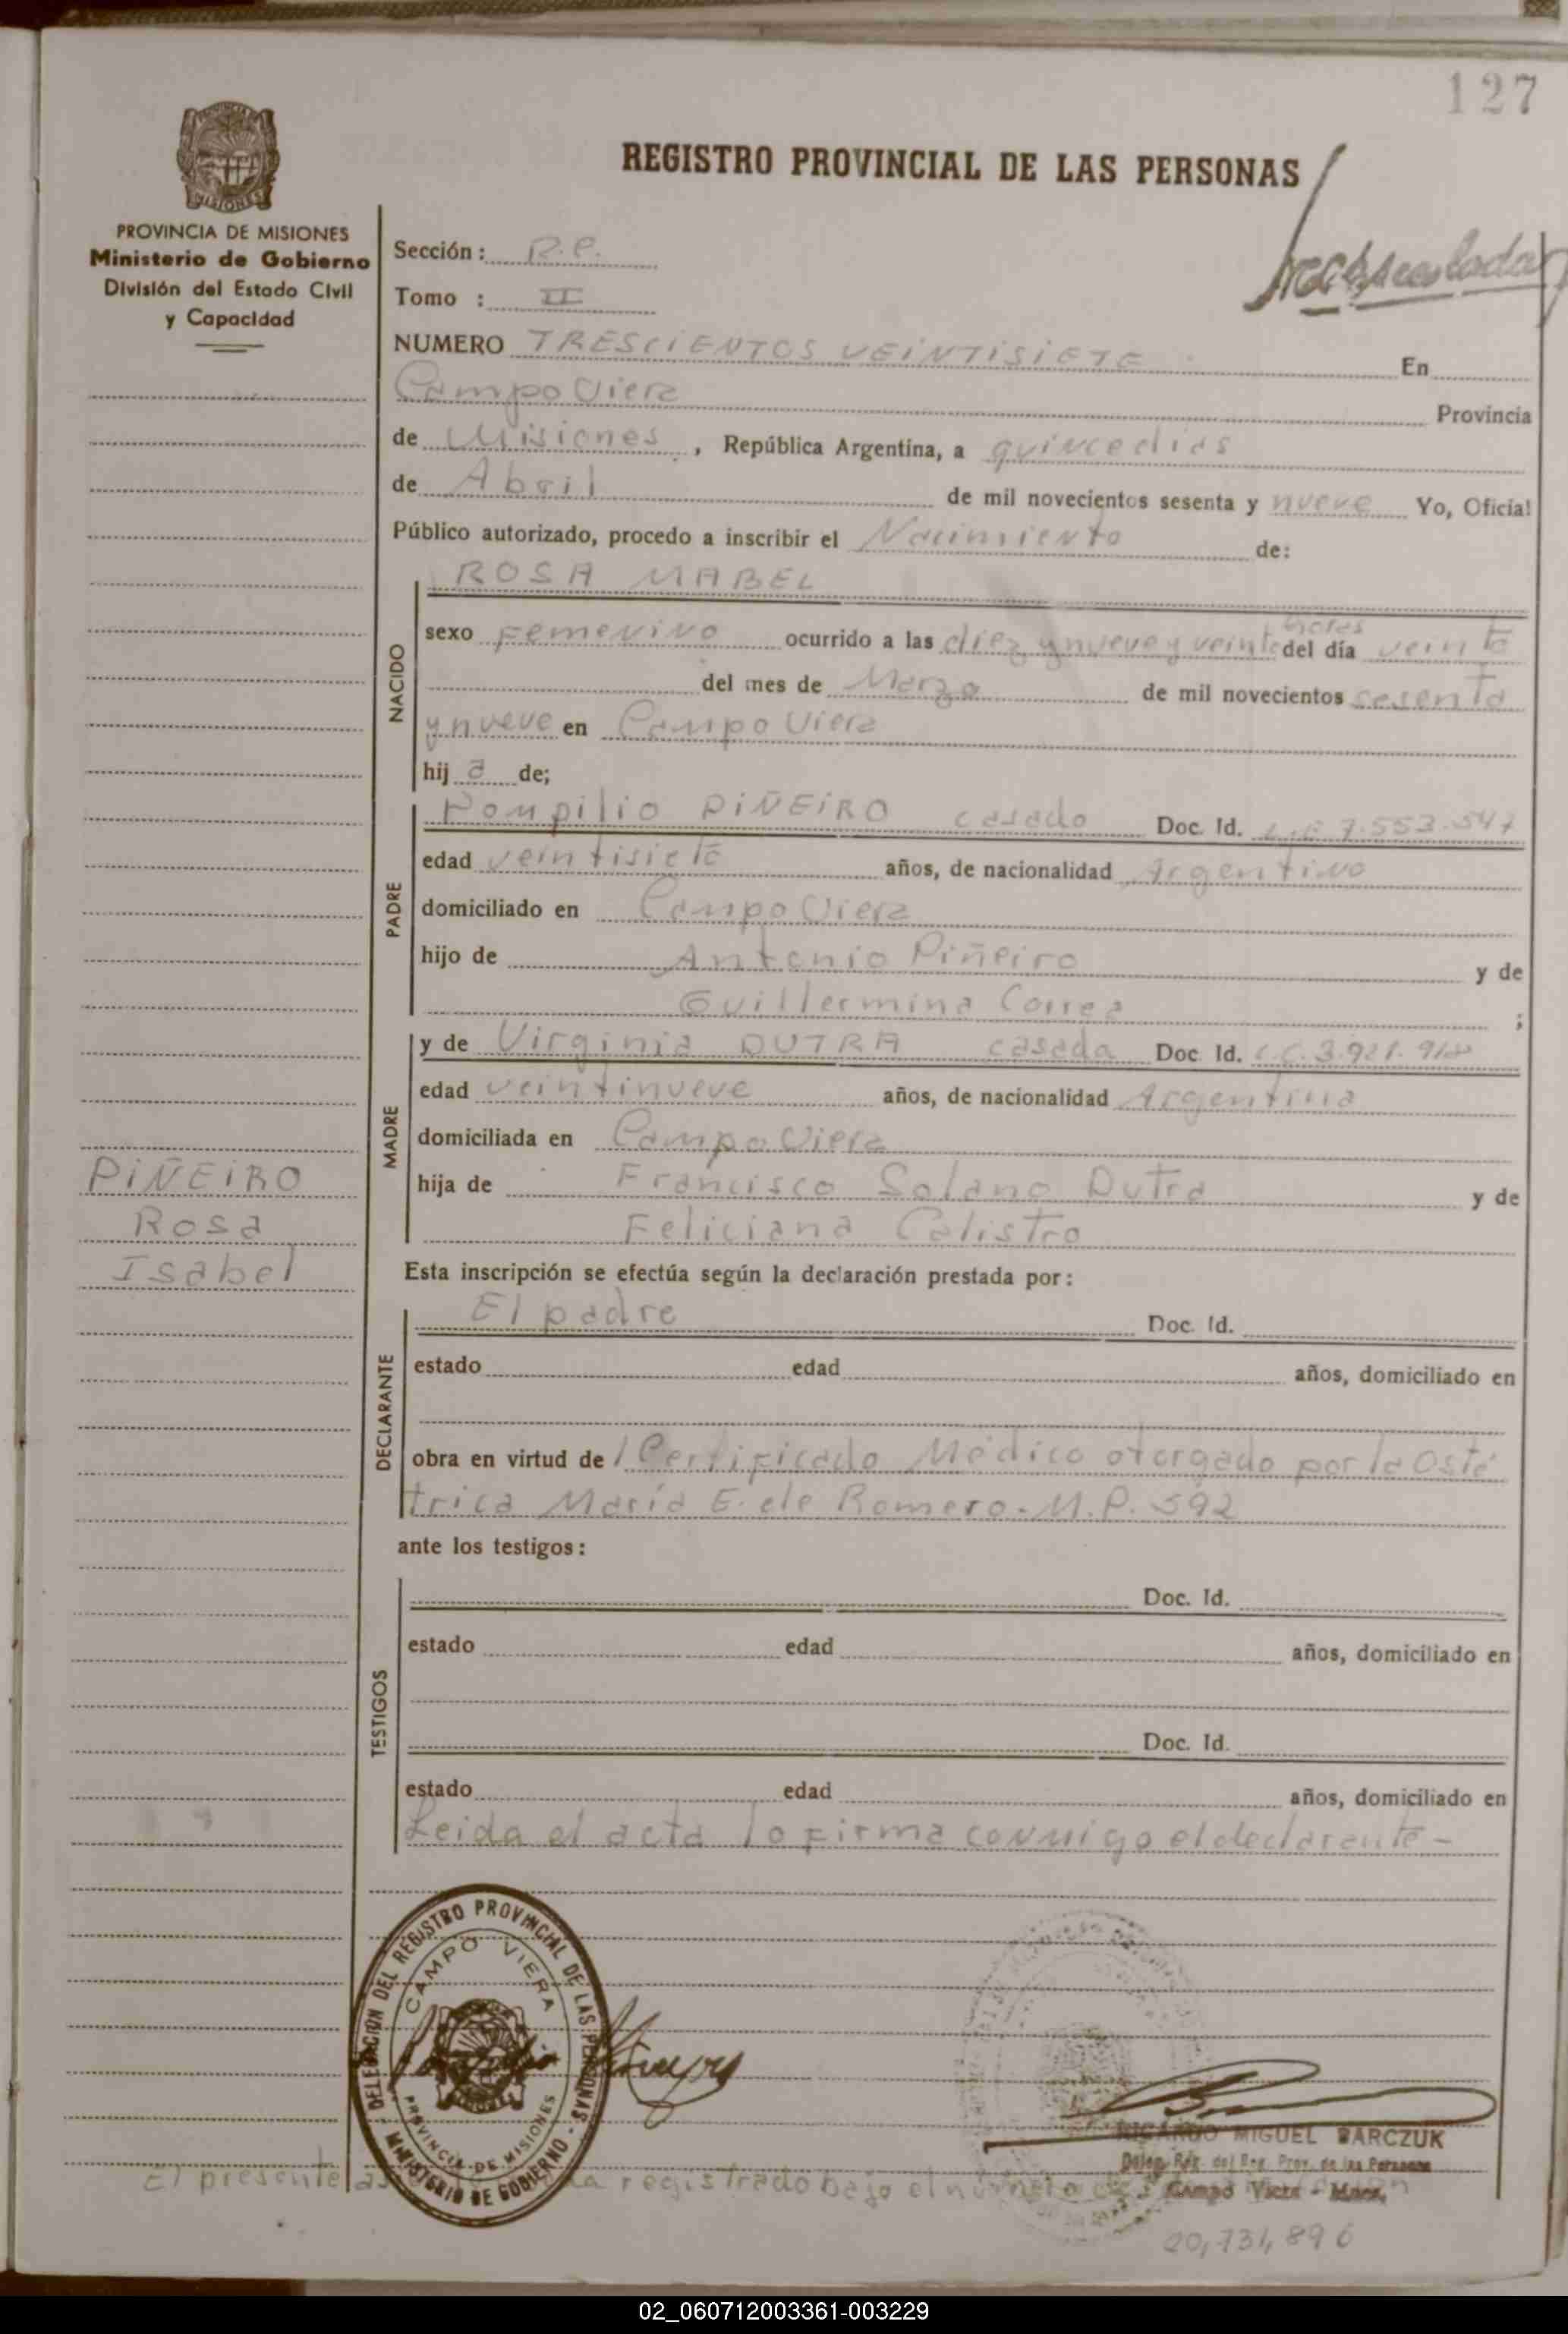 127
REGISTRO PROVINCIAL DE LAS PERSONAS
PROVINCIA DE MISIONES
Ministerio de Gobierno
División del Estado Civil
y Capacidad
Sección: R.P.
Tomo : II
NUMERO TRESCIENTOS VEINTISIETE En
Campo Viera Provincia
de Misiones, República Argentina, a quince dias
de Abril de mil novecientos sesenta y nueve Yo, Oficial
Público autorizado, procedo a inscribir el Nacimiento de:
ROSA MABEL
NACIDO
horas
sexo Femenino ocurrido a las diez y nueve y veinte del día veinte
del mes de Marzo de mil novecientos sesenta
y nueve en Campo Viera
hij a de;
PADRE
Pompilio PIÑEIRO casado Doc. Id. 7.553.547
edad veintisiete años, de nacionalidad Argentino
domiciliado en Campo Viera
hijo de Antonio Piñeiro y de
Guillermina Correa ;
MADRE
y de Virginia DUTRA casada Doc. Id. 3.921.918
edad veintinueve años, de nacionalidad Argentina
domiciliada en Campo Viera
hija de Francisco Solano Dutra y de
Feliciana Calistro
PIÑEIRO
Rosa
Isabel
Esta inscripción se efectúa según la declaración prestada por:
DECLARANTE
El padre Doc. Id.
estado edad años, domiciliado en
obra en virtud de Certificado Médico otorgado por la Osté
trica María E. de Romero-M.P. 592
ante los testigos:
TESTIGOS
Doc. Id.
estado edad años, domiciliado en
Doc. Id.
estado edad años, domiciliado en
Leida el acta lo firma conmigo el declarante-
DELEGACION DEL REGISTRO PROVINCIAL DE LAS PERSONAS - MINISTERIO DE GOBIERNO -
CAMPO VIERA
PROVINCIA DE MISIONES
RICARDO MIGUEL BARCZUK
Deleg. Rég. del Reg. Prov. de las Personas
Campo Viera - Mnes.
El presente registrado bajo el número
20,731,896
02_060712003361-003229